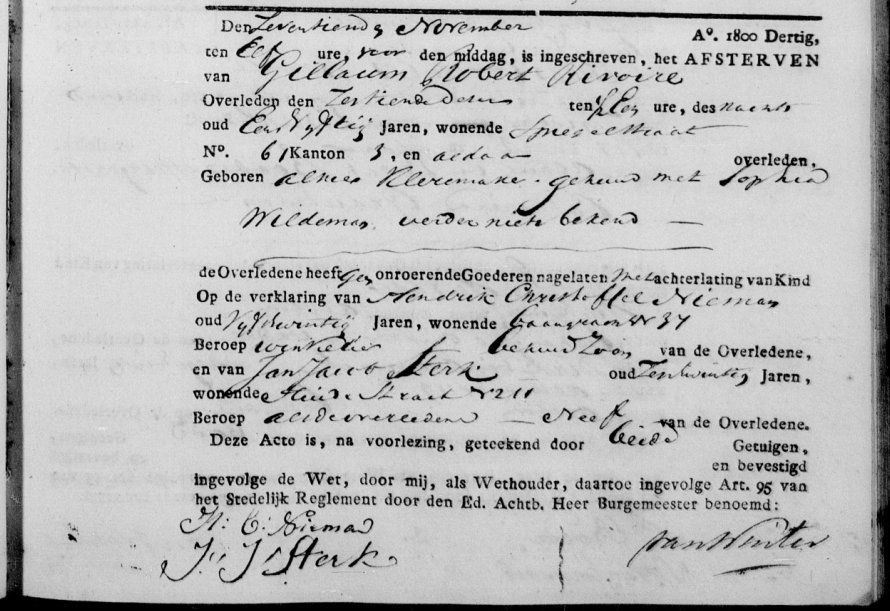 Den Zeventiende November
A°. 1800 Dertig,
ten Elf ure, voor den middag, is ingeschreven, het AFSTERVEN
van Gillaum Robert Rivoire
Overleden den Zestiende dezer ten Een ure, des nachts
oud Een Vyftig Jaren, wonende Spiegelstraat
N°. 61 Kanton 3, en aldaar overleden,
Geboren alhier Kleermaker gehuwd met Sophia
Wildeman, verder niets bekend —
de Overledene heeft geen onroerende Goederen nagelaten Met achterlating van Kind
Op de verklaring van Hendrik Christoffel Nieman
oud Vyf Twintig Jaren, wonende N 37
Beroep winkelier behuwd Zoon van de Overledene,
en van Jan Jacob Sterk oud Zes Twintig Jaren,
wonende Straat N 211
Beroep als de overledene — Neef van de Overledene.
Deze Acte is, na voorlezing, geteekend door beide Getuigen,
en bevestigd
ingevolge de Wet, door mij, als Wethouder, daartoe ingevolge Art. 95 van
het Stedelijk Reglement door den Ed. Achtb. Heer Burgemeester benoemd:
H: C. Nieman
J: J: Sterk
van Winter